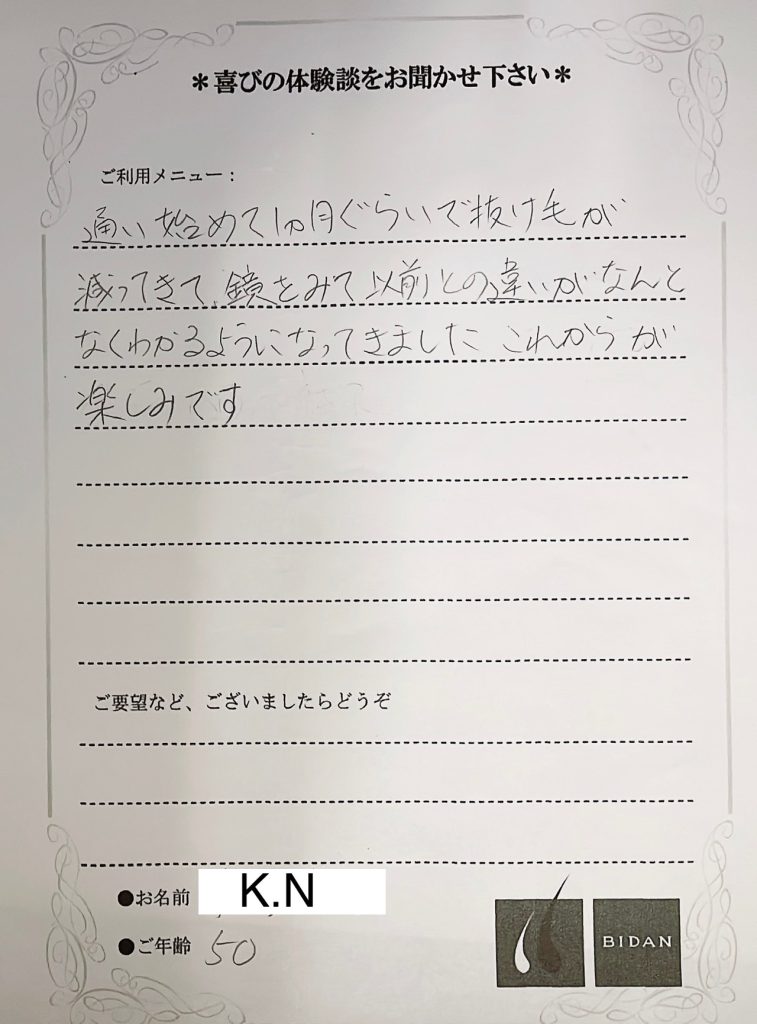 ＊喜びの体験談をお聞かせ下さい＊
ご利用メニュー：
通い始めて1ヵ月ぐらいで抜け毛が
減ってきて、鏡をみて以前との違いがなんと
なくわかるようになってきました これからが
楽しみです
ご要望など、ございましたらどうぞ
●お名前 K.N
●ご年齢 50
BIDAN